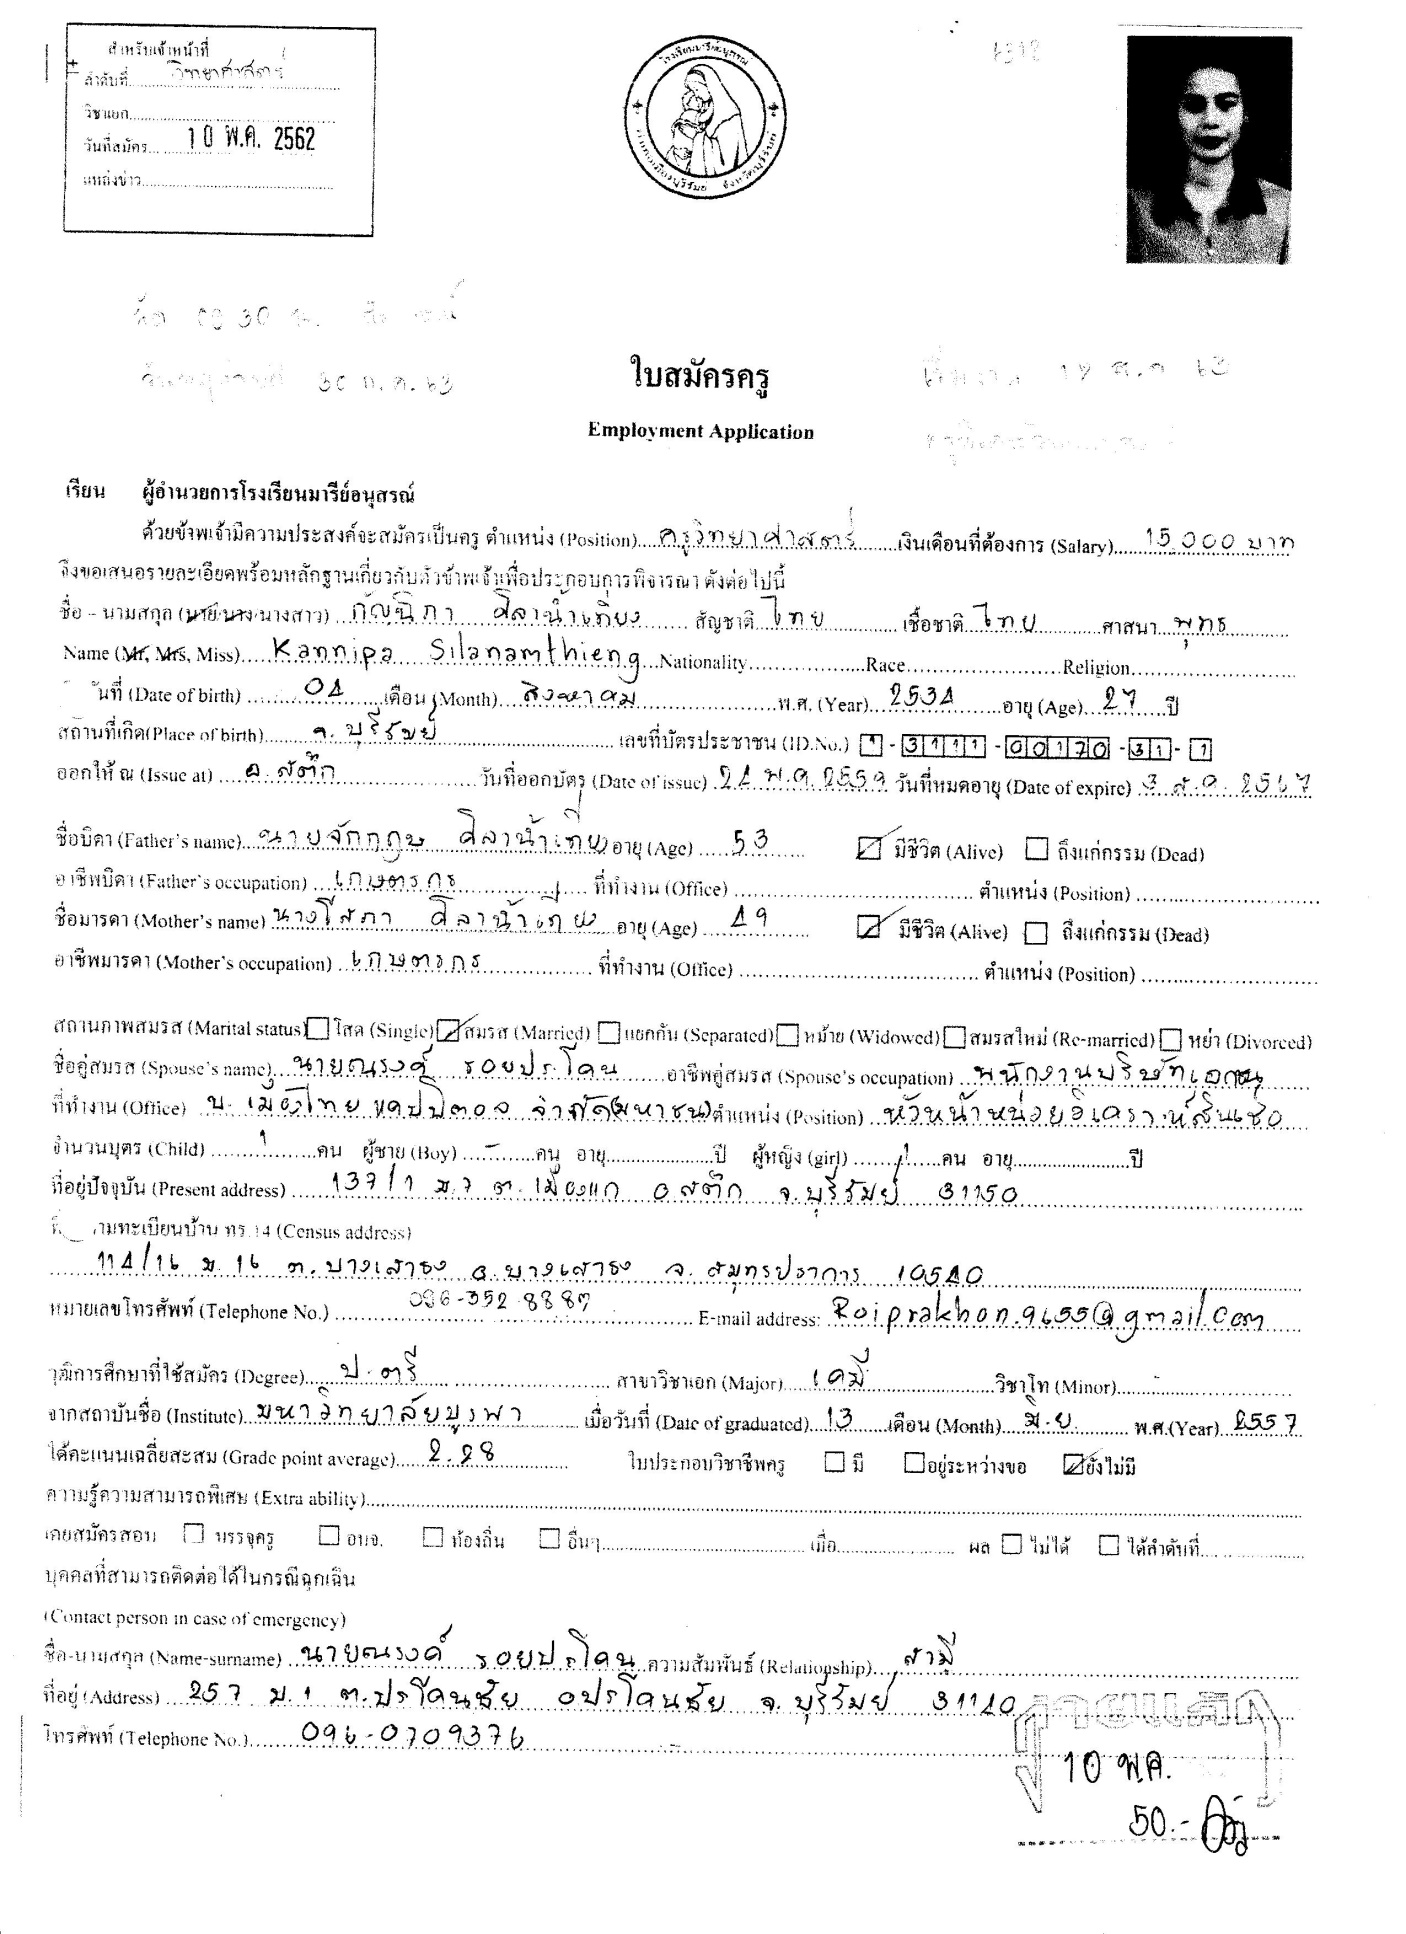 สำหรับเจ้าหน้าที่
ลำดับที่ วิทยาศาสตร์
วิชาเอก
วันที่สมัคร 10 พ.ค. 2562
แหล่งข่าว
โรงเรียนมารีย์อนุสรณ์
อำเภอเมืองบุรีรัมย์ จังหวัดบุรีรัมย์
30 ก.ค. 63
ใบสมัครครู
Employment Application
เรียน ผู้อำนวยการโรงเรียนมารีย์อนุสรณ์
ด้วยข้าพเจ้ามีความประสงค์จะสมัครเป็นครู ตำแหน่ง (Position) ครูวิทยาศาสตร์ เงินเดือนที่ต้องการ (Salary) 15,000 บาท
จึงขอเสนอรายละเอียดพร้อมหลักฐานเกี่ยวกับตัวข้าพเจ้าเพื่อประกอบการพิจารณา ดังต่อไปนี้
ชื่อ – นามสกุล (นาย/นาง/นางสาว) กัณนิภา ศิลาน้ำเที่ยง สัญชาติ ไทย เชื้อชาติ ไทย ศาสนา พุทธ
Name (Mr, Mrs, Miss) Kannipa Silanamthieng Nationality Race Religion
วันที่ (Date of birth) 04 เดือน (Month) สิงหาคม พ.ศ. (Year) 2534 อายุ (Age) 27 ปี
สถานที่เกิด(Place of birth) จ. บุรีรัมย์ เลขที่บัตรประชาชน (ID.No.) 1 - 3111 - 00170 - 31 - 1
ออกให้ ณ (Issue at) อ.สตึก วันที่ออกบัตร (Date of issue) 24 พ.ค. 2559 วันที่หมดอายุ (Date of expire) 3 ส.ค. 2567
ชื่อบิดา (Father's name) นายจักกฤษ ศิลาน้ำเที่ยง อายุ (Age) 53 มีชีวิต (Alive) ถึงแก่กรรม (Dead)
อาชีพบิดา (Father's occupation) เกษตรกร ที่ทำงาน (Office) ตำแหน่ง (Position)
ชื่อมารดา (Mother's name) นางโสภา ศิลาน้ำเที่ยง อายุ (Age) 49 มีชีวิต (Alive) ถึงแก่กรรม (Dead)
อาชีพมารดา (Mother's occupation) เกษตรกร ที่ทำงาน (Office) ตำแหน่ง (Position)
สถานภาพสมรส (Marital status) โสด (Single) สมรส (Married) แยกกัน (Separated) หม้าย (Widowed) สมรสใหม่ (Re-married) หย่า (Divorced)
ชื่อคู่สมรส (Spouse's name) นายณรงค์ รอยประโคน อาชีพคู่สมรส (Spouse's occupation) พนักงานบริษัทเอกชน
ที่ทำงาน (Office) บ. เมืองไทย แคปปิตอล จำกัด(มหาชน) ตำแหน่ง (Position) หัวหน้าหน่วยวิเคราะห์สินเชื่อ
จำนวนบุตร (Child) 1 คน ผู้ชาย (Boy) - คน อายุ ปี ผู้หญิง (girl) 1 คน อายุ ปี
ที่อยู่ปัจจุบัน (Present address) 137/1 ม.7 ต.เมืองแก อ.สตึก จ.บุรีรัมย์ 31150
ามทะเบียนบ้าน ทร.14 (Census address)
114/16 ม. 16 ต. บางเสาธง อ.บางเสาธง จ. สมุทรปราการ 10540
หมายเลขโทรศัพท์ (Telephone No.) 096-352-8887 E-mail address: Roiprakhon.9655@gmail.com
วุฒิการศึกษาที่ใช้สมัคร (Degree) ป.ตรี สาขาวิชาเอก (Major) เคมี วิชาโท (Minor) -
จากสถาบันชื่อ (Institute) มหาวิทยาลัยบูรพา เมื่อวันที่ (Date of graduated) 13 เดือน (Month) มิ.ย. พ.ศ.(Year) 2557
ได้คะแนนเฉลี่ยสะสม (Grade point average) 2.28 ใบประกอบวิชาชีพครู มี อยู่ระหว่างขอ ยังไม่มี
ความรู้ความสามารถพิเศษ (Extra ability)
เคยสมัครสอบ บรรจุครู อบจ. ท้องถิ่น อื่นๆ เมื่อ ผล ไม่ได้ ได้ลำดับที่
บุคคลที่สามารถติดต่อได้ในกรณีฉุกเฉิน
(Contact person in case of emergency)
ชื่อ-นามสกุล (Name-surname) นายณรงค์ รอยประโคน ความสัมพันธ์ (Relationship) สามี
ที่อยู่ (Address) 257 ม.1 ต.ประโคนชัย อ.ประโคนชัย จ.บุรีรัมย์ 31140
โทรศัพท์ (Telephone No.) 096-0709376
จ่ายแล้ว
10 พ.ค.
50.-